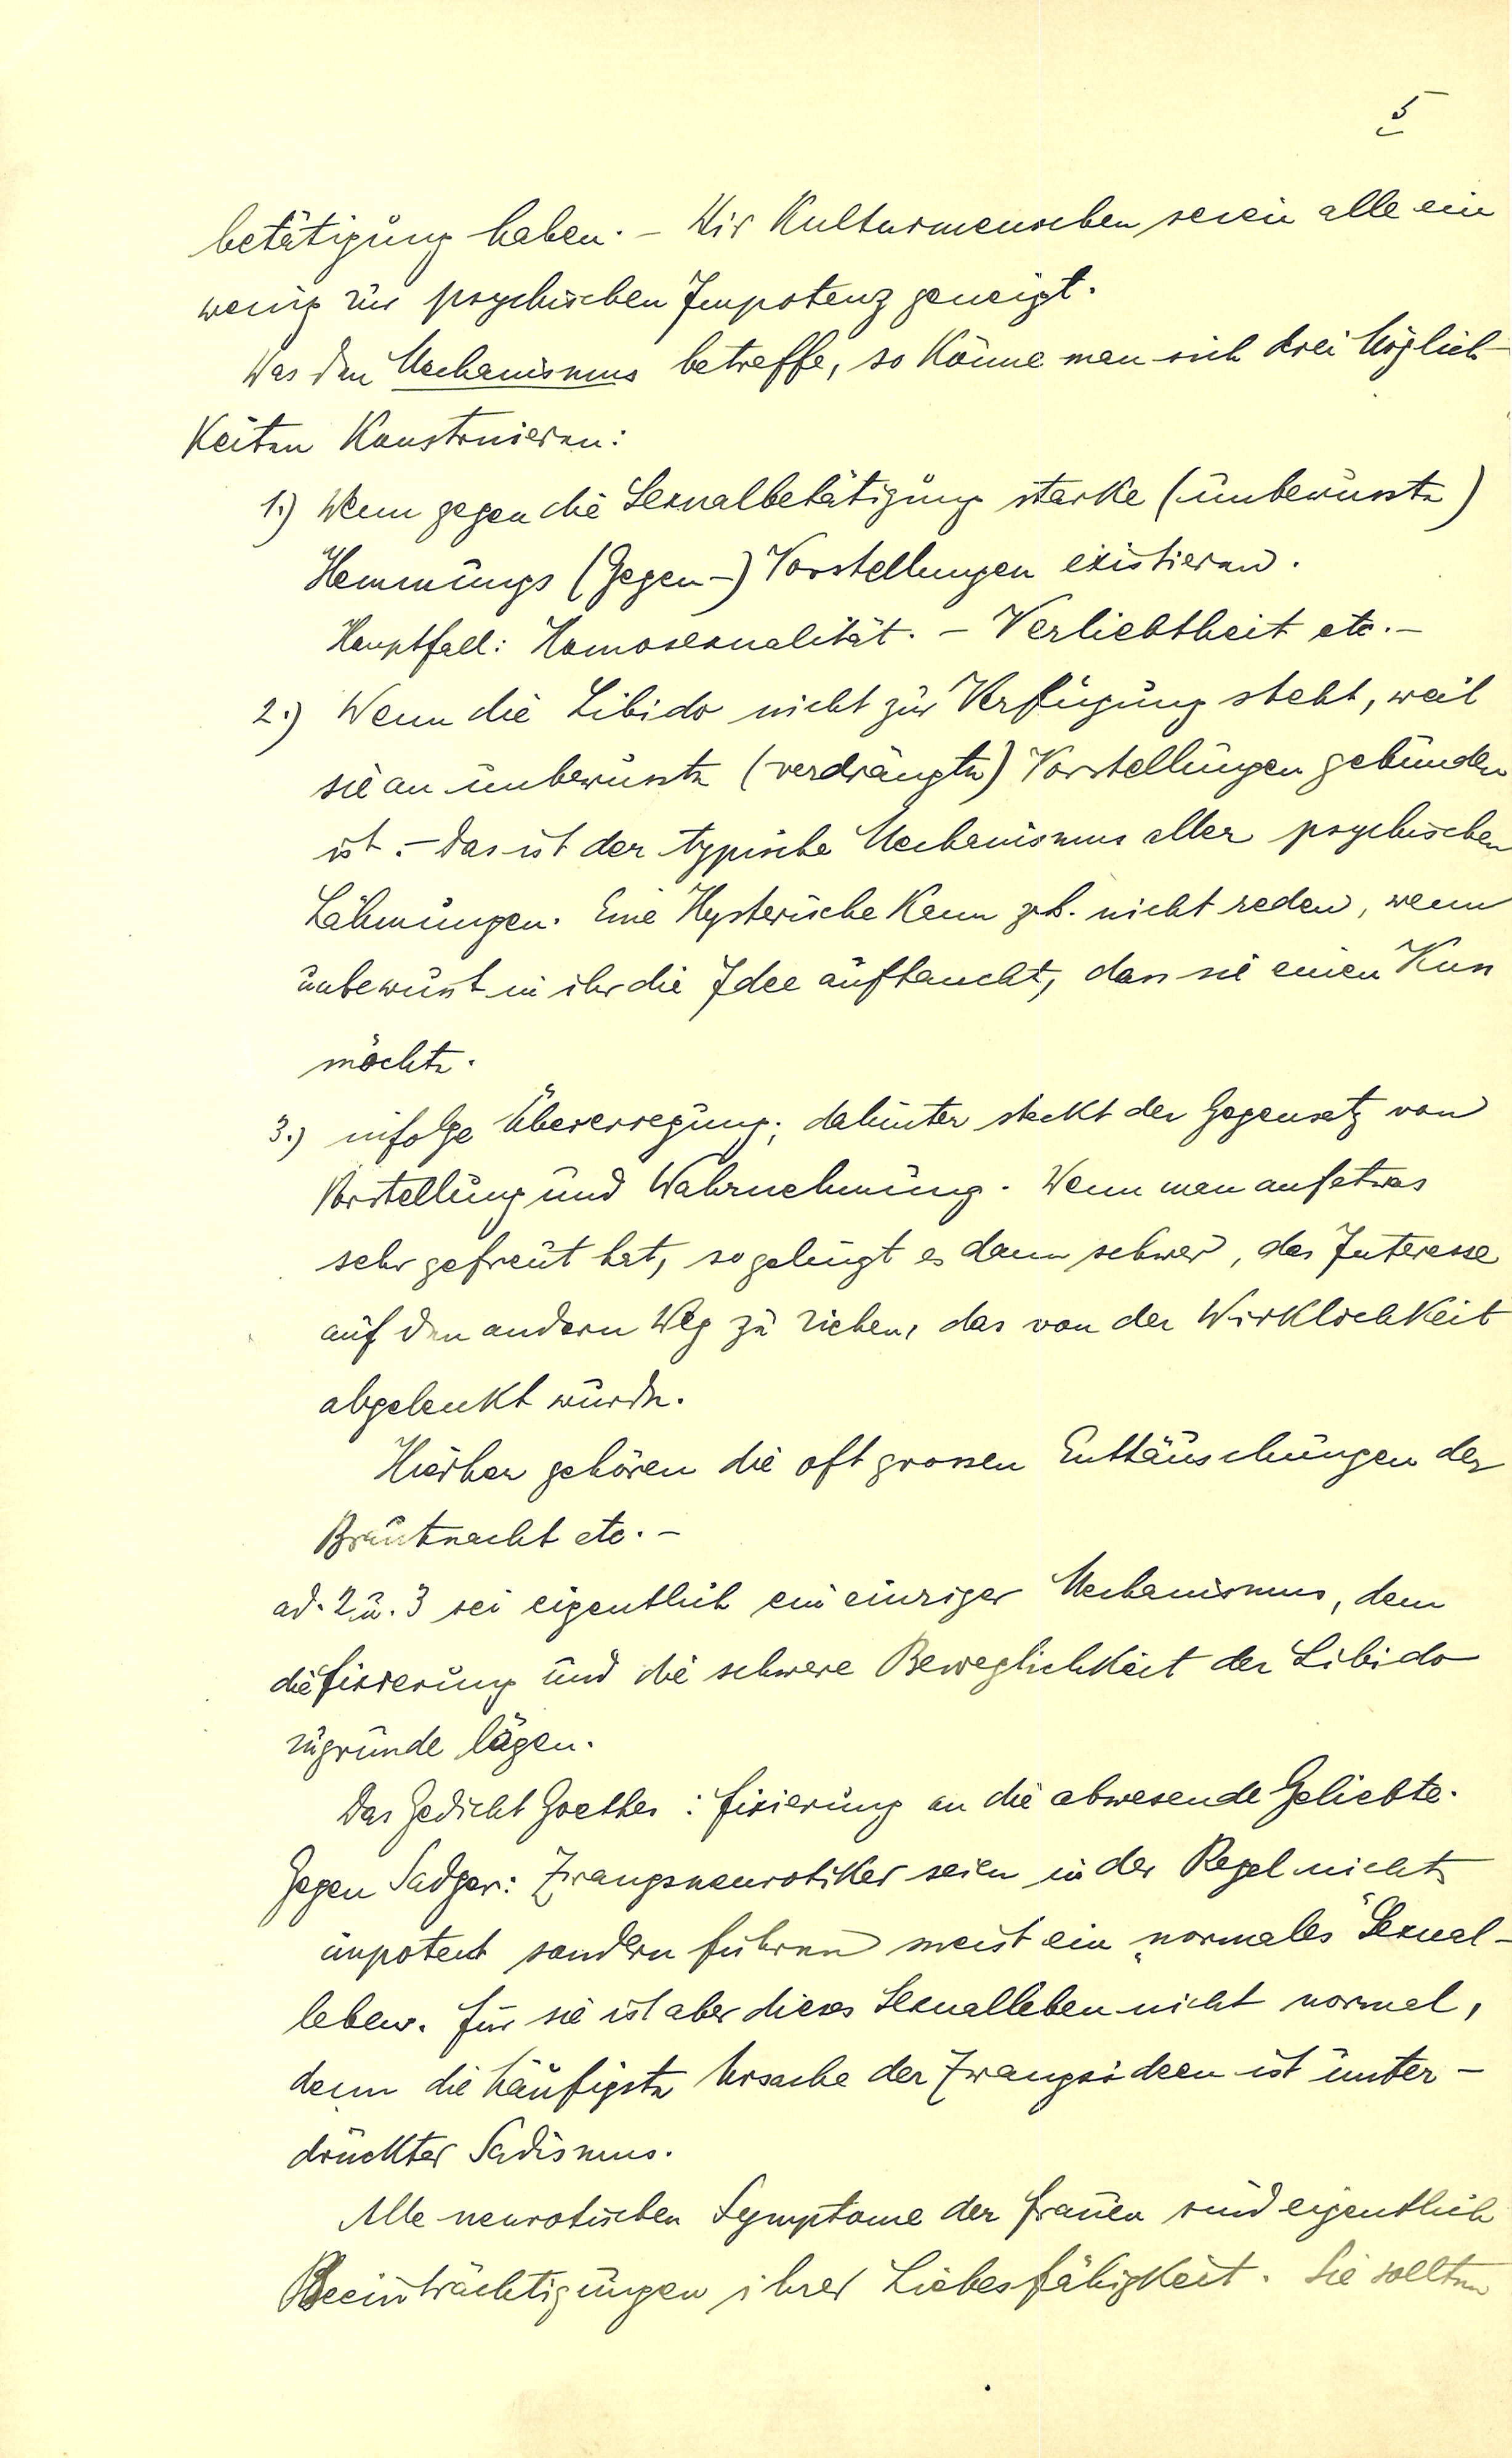 5
betätigung haben. – Wir Kulturmenschen seien alle ein
wenig zur psychischen Impotenz geneigt.
Was den Mechanismus betreffe, so könne man sich drei Möglich-
keiten konstruieren:
1.) Wenn gegen die Sexualbetätigung starke (unbewusste)
Hemmungs (Gegen-) Vorstellungen existieren.
Hauptfall: Homosexualität. – Verliebtheit etc. –
2.) Wenn die Libido nicht zur Verfügung steht, weil
sie an unbewusste (verdrängte) Vorstellungen gebunden
ist. – Das ist der typische Mechanismus aller psychischen
Lähmungen. Eine Hysterische kann z.b. nicht reden, wenn
unbewusst in ihr die Idee auftaucht, dass sie einen Kuss
möchte.
3.) infolge Übererregung; dahinter steckt der Gegensatz von
Vorstellung und Wahrnehmung. Wenn man auf etwas
sehr gefreut hat, so gelingt es dann schwer, das Interesse
auf den andern Weg zu ziehen, das von der Wirklichkeit
abgelenkt wurde.
Hierher gehören die oft grossen Enttäuschungen der
Brautnacht etc. –
ad. 2 u. 3 sei eigentlich ein einziger Mechanismus, dem
die Fixierung und die schwere Beweglichkeit der Libido
zugrunde lägen.
Das Gedicht Goethes: Fixierung an die abwesende Geliebte.
Gegen Sadger: Zwangsneurotiker seien in der Regel nicht
impotent sondern führen meist ein „normales" Sexual-
leben. Für sie ist aber dieses Sexualleben nicht normal,
denn die häufigste Ursache der Zwangsideen ist unter-
drückter Sadismus.
Alle neurotischen Symptome der Frauen sind eigentlich
Beeinträchtigungen ihrer Liebesfähigkeit. Sie sollten